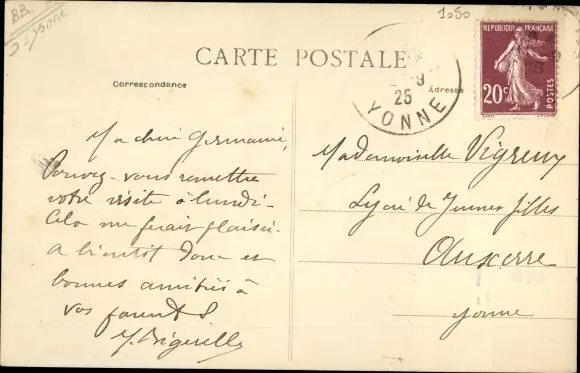 BB
Yonne
1050
CARTE POSTALE
Correspondance
Adresse
9
25
YONNE
REPUBLIQUE FRANÇAISE
20c
POSTES
Ma chère Germaine,
Pouvez-vous remettre
votre visite à lundi-
Cela me ferait plaisir.
A bientôt donc et
bonnes amitiés à
vos parents
Mademoiselle Vigreux
Lycée de Jeunes filles
Auxerre
Yonne